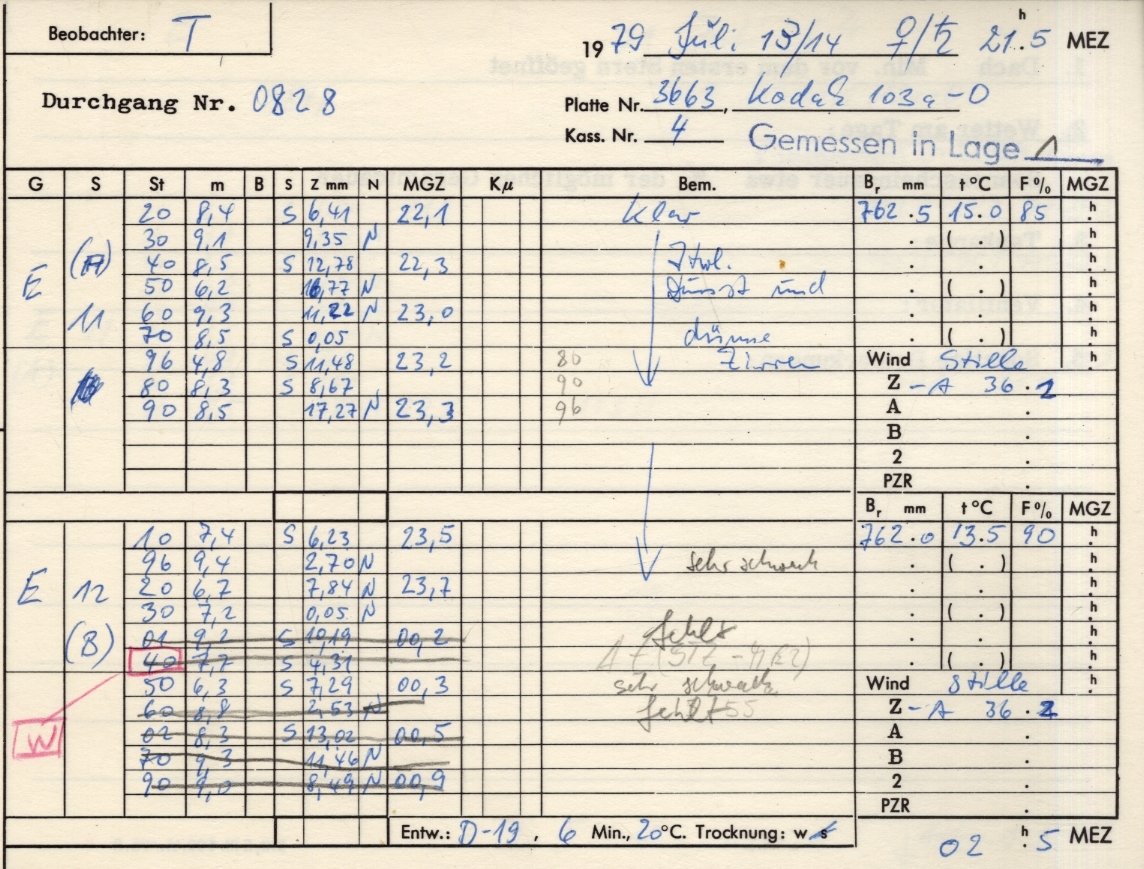 Beobachter: T
1979 Juli 13/14 ♀/♄ 21 h.5 MEZ
Durchgang Nr. 0828
Platte Nr. 3663, Kodak 103a-O
Kass. Nr. 4 Gemessen in Lage
G S St m B S Z mm N MGZ Kμ Bem. Br mm t°C F% MGZ
20 8,4 S 6,41 22,1 klar 762.5 15.0 85 h
30 9,1 9,35 N . ( . ) h
40 8,5 S 12,78 22,3 Ztwl. . . h
E 50 6,2 16,77 N Dunst und . ( . ) h
11 60 9,3 11,22 N 23,0 . . h
70 8,5 S 0,05 dünne . ( . ) h
96 4,8 S 11,48 23,2 80 Zirren Wind Stille h
80 8,3 S 8,67 90 Z -A 36.2
90 8,5 17,27 N 23,3 96 A .
B .
2 .
PZR .
Br mm t°C F% MGZ
10 7,4 S 6,23 23,5 762.0 13.5 90 h
96 9,4 2,70 N sehr schwach . ( . ) h
E 12 20 6,7 7,84 N 23,7 . . h
30 7,2 0,05 N . ( . ) h
(B) 01 9,2 S 10,19 00,2 fehlt . . h
40 7,7 S 4,31 . ( . ) h
50 6,3 S 7,29 00,3 sehr schwach Wind Stille h
60 8,8 2,53 N fehlt 55 Z -A 36.2
W 02 8,3 S 13,02 00,5 A .
70 9,3 11,46 N B .
90 9,0 8,49 N 00,9 2 .
PZR .
Entw.: D-19, 6 Min., 20°C. Trocknung: w s
02 h.5 MEZ